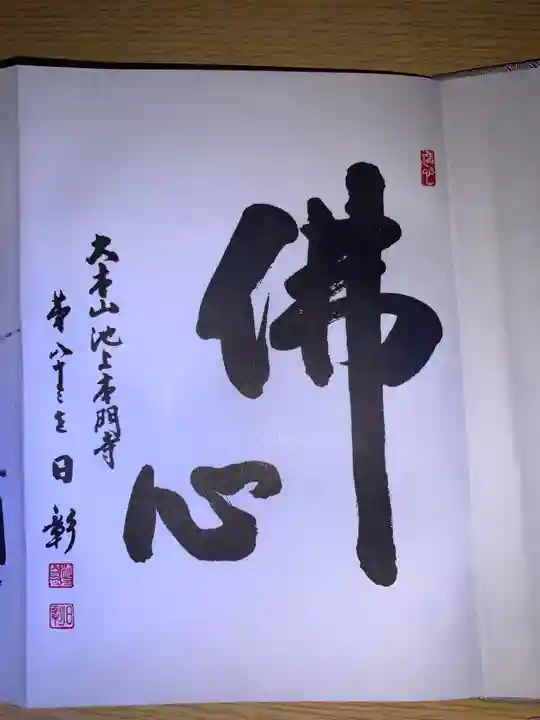 佛心
大本山池上本門寺
第八十三世日彰